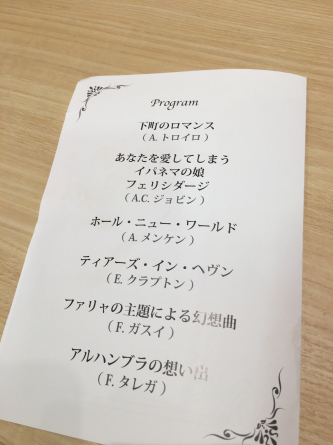 Program
下町のロマンス
( A. トロイロ )
あなたを愛してしまう
イパネマの娘
フェリシダージ
( A.C. ジョビン )
ホール・ニュー・ワールド
( A. メンケン )
ティアーズ・イン・ヘヴン
( E. クラプトン )
ファリャの主題による幻想曲
( F. ガスイ )
アルハンブラの想い出
( F. タレガ )